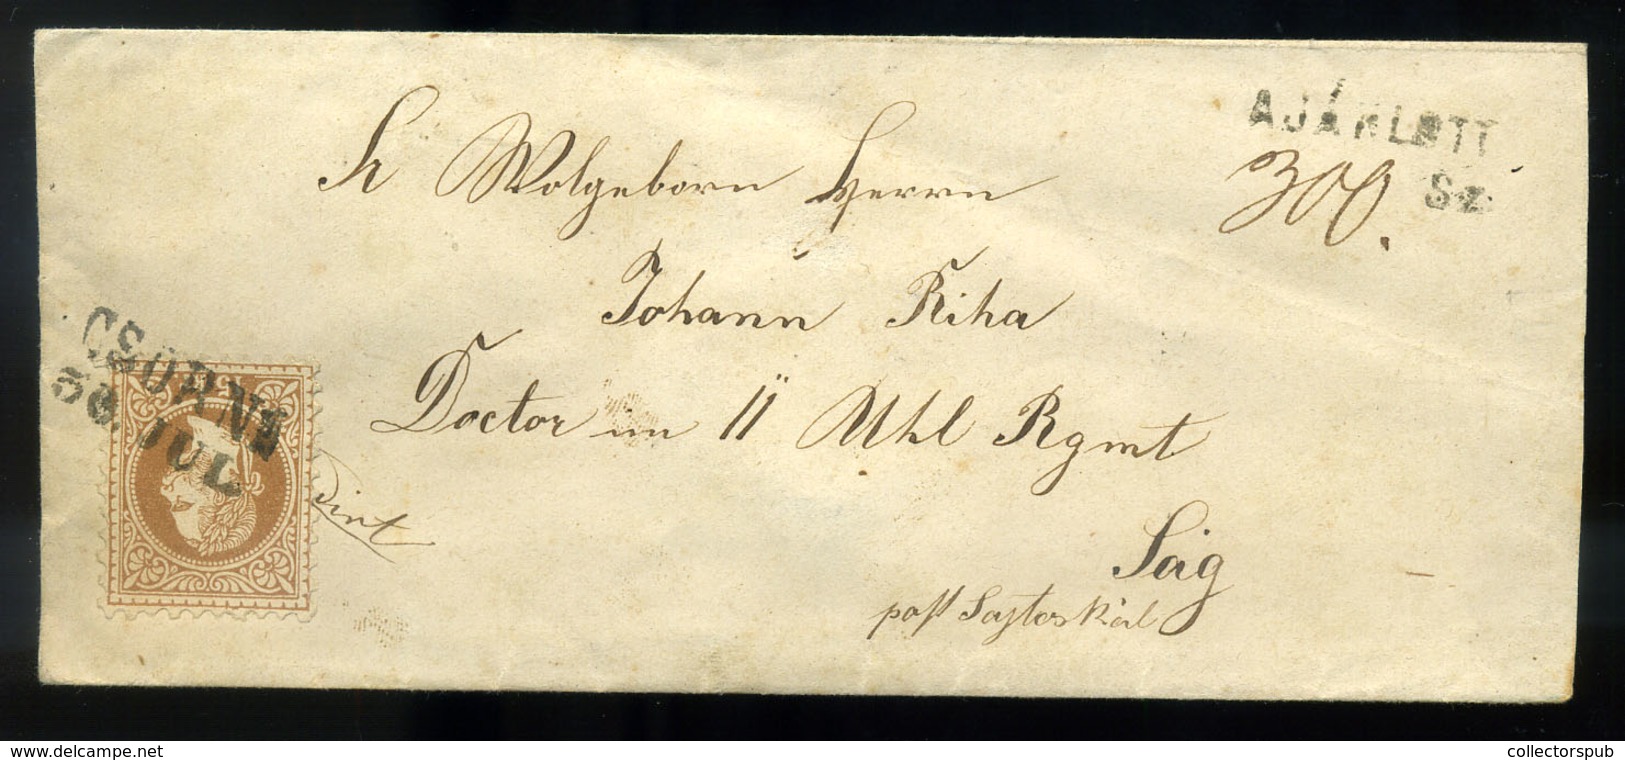 AJÁNLOTT
Sz
300.
Sr Wolgeborn Herrn
Johann Riha
Doctor im 11 Uhl Rgmt
Ság
post Sajtoskál
CSORNA
30 JUL
collectorspub